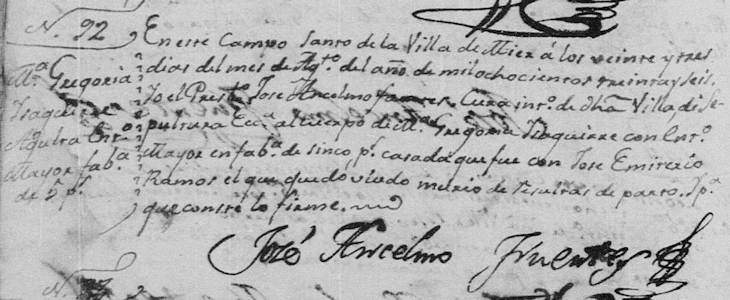 N. 92
M.ª Gregoria
Ysaguirre
Adulta Ent.º
Mayor fab.ª
de 5 p.s
En este Campo Santo de la Villa de Mier á los veinte y tres
dias del mes de Ag.to del año de mil ochocientos treinta y seis.
Yo el Presb.º Jose Ancelmo fuentes Cura int.º de dha Villa di Se-
pultura Ecc.ª al cuerpo de M.ª Gregoria Ysaguirre con Ent.º
Mayor en fab.ª de sinco p.s casada que fue con Jose Emiterio
Ramos el que quedo viudo murio de resultas de parto. Y p.ª
que conste lo firme.
José Ancelmo Fuentes
N.